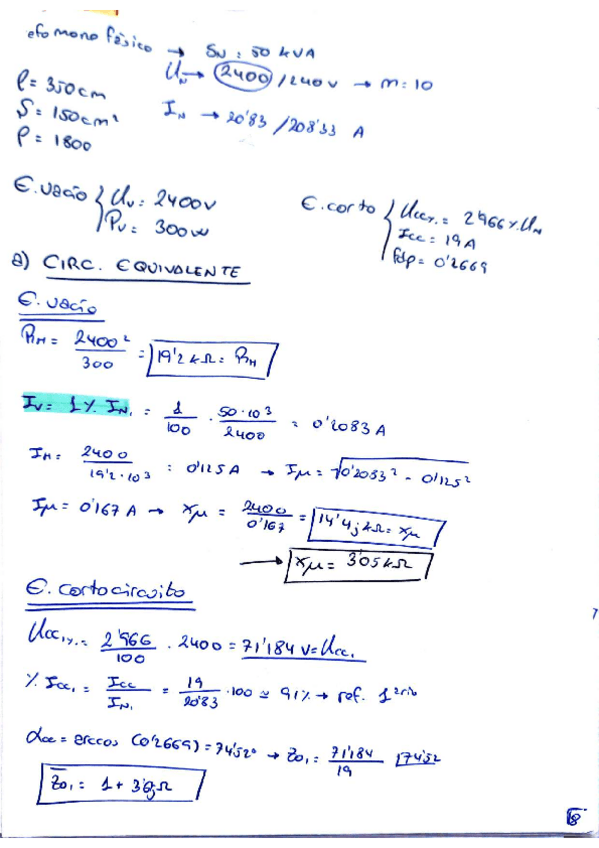 efo monofásico → SN: 50 kVA
UN → 2400/240V → m: 10
l = 350cm
S = 150cm²
ρ = 1800
IN → 20'83/208'33 A
E. vacío { Uv = 2400V
Pv = 300W
E. corto { Ucc% = 2'966% UN
Icc = 19A
fdp = 0'2669
a) CIRC. EQUIVALENTE
E. vacío
RM = 2400² / 300 = 19'2 kΩ = RM
Iv = 1% IN1 = 1/100 · 50·10³/2400 = 0'2083 A
IM = 2400 / 19'2·10³ = 0'125 A → Iμ = √0'2083² - 0'125²
Iμ = 0'167 A → Xμ = 2400/0'167 = 14'4j kΩ = Xμ
→ Xμ = 3'05 kΩ
E. cortocircuito
Ucc1% = 2'966/100 · 2400 = 71'184 V = Ucc1
% Icc1 = Icc/IN1 = 19/20'83 · 100 ≃ 91% → ref. 1ario
αcc = arccos (0'2669) = 74'52° → Z01 = 71'184/19 |74'52
Z01 = 1 + 3'6j Ω
8